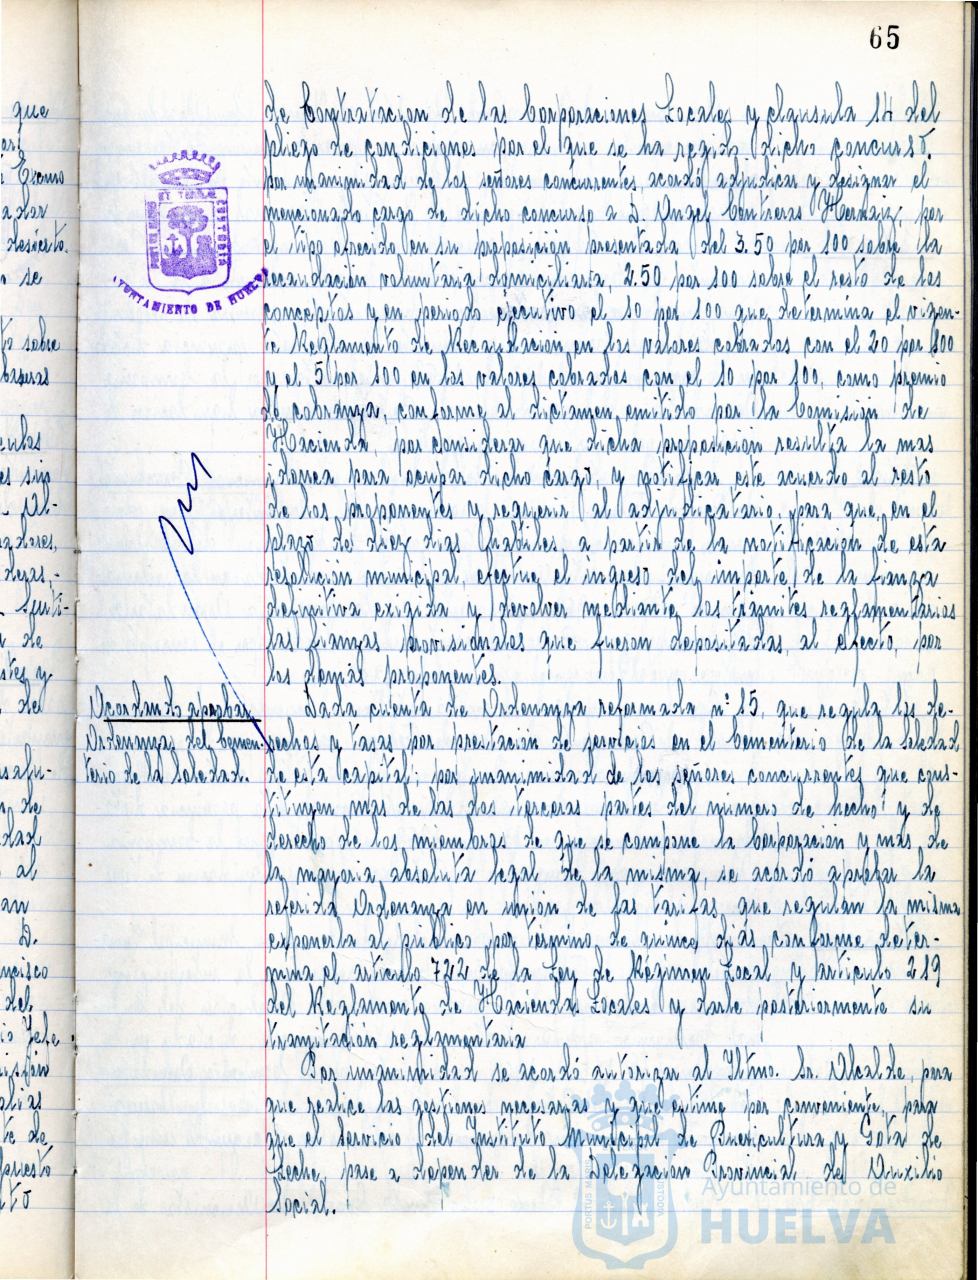 65
de Contratacion de las Corporaciones Locales y clausula 14 del
pliego de condiciones por el que se ha regido dicho concurso,
por unanimidad de los señores concurrentes, acordó adjudicar y designar el
mencionado cargo de dicho concurso a D. Angel Contreras Hernaiz, por
el tipo ofrecido en su proposición presentada del 3.50 por 100 sobre la
recaudación voluntaria domiciliaria, 2.50 por 100 sobre el resto de los
conceptos y en periodo ejecutivo el 10 por 100 que determina el vigen-
te Reglamento de Recaudacion en los valores cobrados con el 20 por 100
y el 5 por 100 en los valores cobrados con el 10 por 100, como premio
de cobranza, conforme al dictamen emitido por la Comisión de
Hacienda, por considerar que dicha proposición resulta la mas
idonea para ocupar dicho cargo, y notificar este acuerdo al resto
de los proponentes y requerir al adjudicatario, para que, en el
plazo de diez dias habiles, a partir de la notificación de esta
resolución municipal, efectue el ingreso del importe de la fianza
definitiva exigida y devolver mediante los trámites reglamentarios
las fianzas provisionales que fueron depositadas, al efecto, por
los demás proponentes.
Acordando aprobar
Ordenanzas del Cemen-
terio de la Soledad.
Dada cuenta de Ordenanza reformada nº 15, que regula los de-
rechos y tasas por prestación de servicios en el Cementerio de la Soledad
de esta capital; por unanimidad de los señores concurrentes que cons-
tituyen mas de las dos terceras partes del número de hecho y de
derecho de los miembros de que se compone la Corporación y mas de
la mayoria absoluta legal de la misma, se acordó aprobar la
referida Ordenanza en unión de las tarifas que regulan la misma
exponerla al público por término de quince dias, conforme deter-
mina el articulo 722 de la Ley de Régimen Local y articulo 219
del Reglamento de Haciendas Locales y darle posteriormente su
tramitación reglamentaria
Por unanimidad se acordó autorizar al Iltmo. Sr. Alcalde, para
que realice las gestiones necesarias y que estime por conveniente, para
que el servicio del Instituto Municipal de Puericultura y Gota de
Leche, pase a depender de la Delegacion Provincial de Auxilio
Social.
AYUNTAMIENTO DE HUELVA
Ayuntamiento de
HUELVA